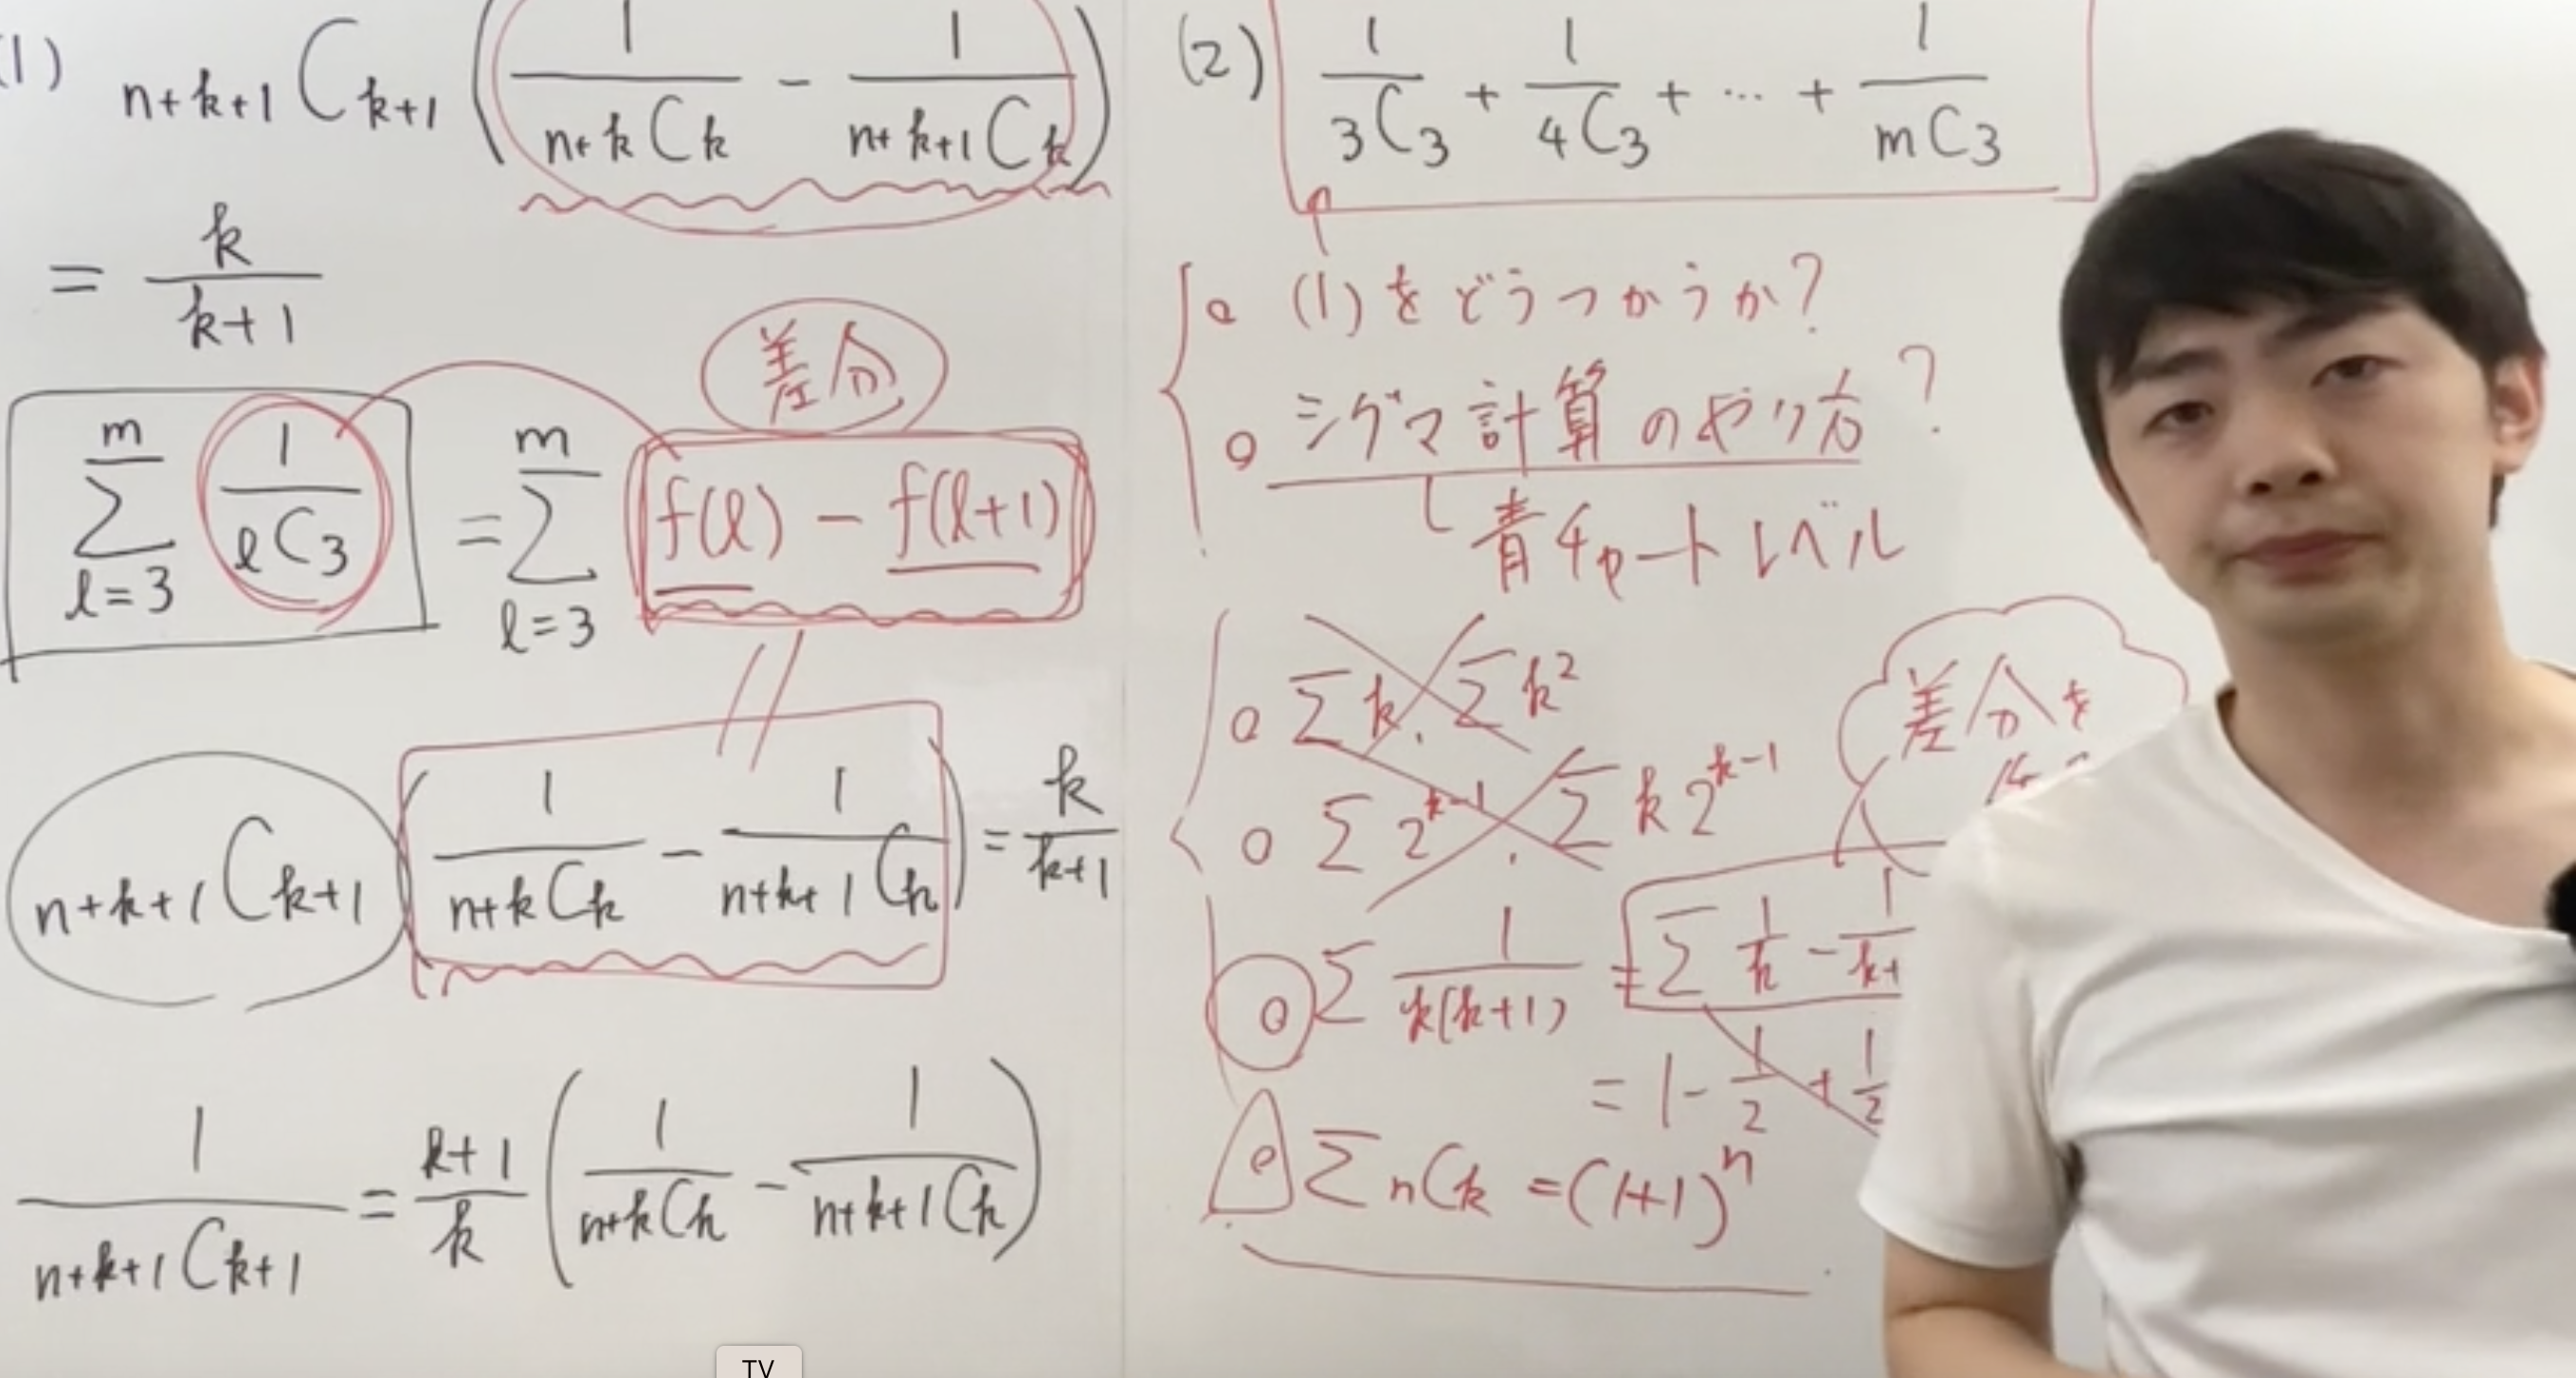 (1) n+k+1Ck+1 ( 1/n+kCk - 1/n+k+1Ck )
= k/k+1
差分
m Σ l=3 1/lC3 = m Σ l=3 f(l) - f(l+1)
n+k+1Ck+1 ( 1/n+kCk - 1/n+k+1Ck ) = k/k+1
1/n+k+1Ck+1 = k+1/k ( 1/n+kCk - 1/n+k+1Ck )
(2) 1/3C3 + 1/4C3 + ... + 1/mC3
(1)をどうつかうか?
シグマ計算のやり方?
青チャートレベル
Σk, Σk²
Σ2^k-1, Σk2^k-1
差分を
Σ 1/k(k+1) = Σ 1/k - 1/k+
= 1 - 1/2 + 1/2
ΣnCk = (1+1)^n
TV